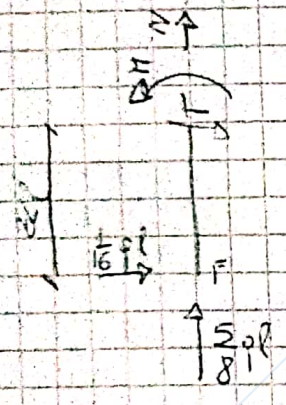 N
M
T
1/16 pl
F
5/8 pl